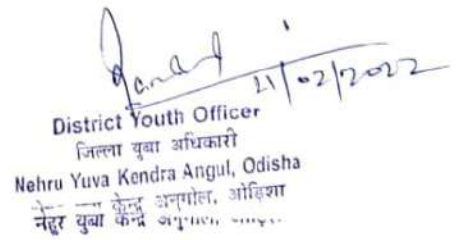 21/02/2022
District Youth Officer
जिल्ला युबा अधिकारी
Nehru Yuva Kendra Angul, Odisha
केन्द्र अनुगोल, ओड़िशा
नेहुर युबा केन्द्र